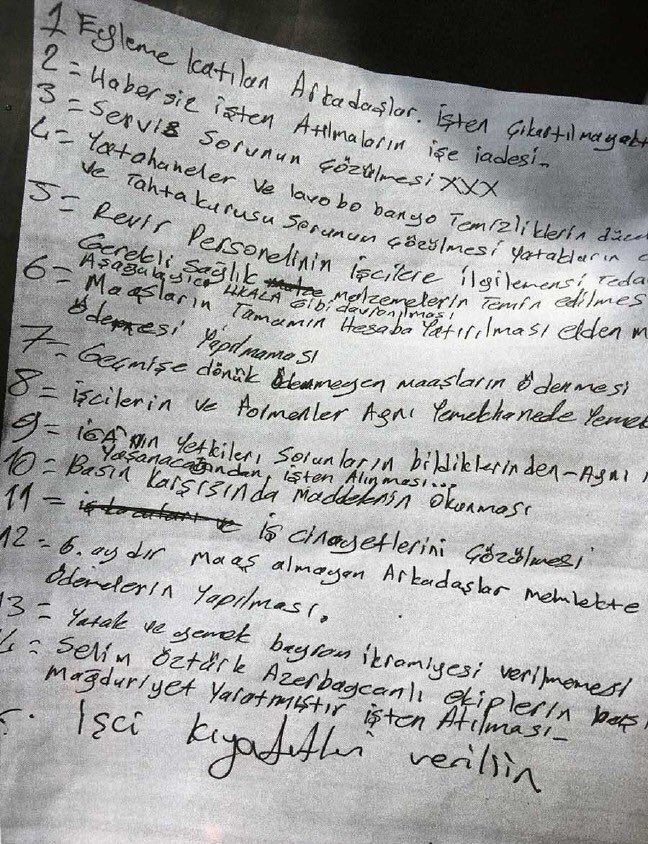 1 Eyleme katılan Arkadaşlar. işten Çıkartılmayak
2 = Habersiz işten Atılmaların işe iadesi-
3 = Servis Sorunun Çözülmesi XXX
4 = Yatahaneler ve lavobo banyo Temizliklerin düze
ve Tahtakurusu Sorunun Çözülmesi yatakların
5 = Revir Personelinin İşcilere ilgilemensi, Teda
Gerekli Sağlık melzemelerin Temin edilmes
Aşağalayıcı Gibi davranılması
6 = Maaşların Tamamın Hesaba Yatırılması elden m
Ödemesi Yapılmaması
7 = Geçmişe dönük Ödenmeyen maaşların Ödenmesi
8 = işcilerin ve Formenler Aynı Yemekhanede Yemek
9 = iGA'nın Yetkileri Sorunların bildiklerinden - Aynı
Yaşanacağından, işten Alınması...
10 = Basın Karşısında Maddelerin Okunması
11 = iş cinayetlerini Çözülmesi
12 = 6. aydır maaş almayan Arkadaşlar memlekte
Ödemelerin Yapılması.
13 = Yatak ve yemek bayram ikramiyesi verilmemesi
Selim Öztürk Azerbaycanlı ekiplerin
mağduriyet Yaratmıştır işten Atılması-
İşci kıyafetleri verilsin